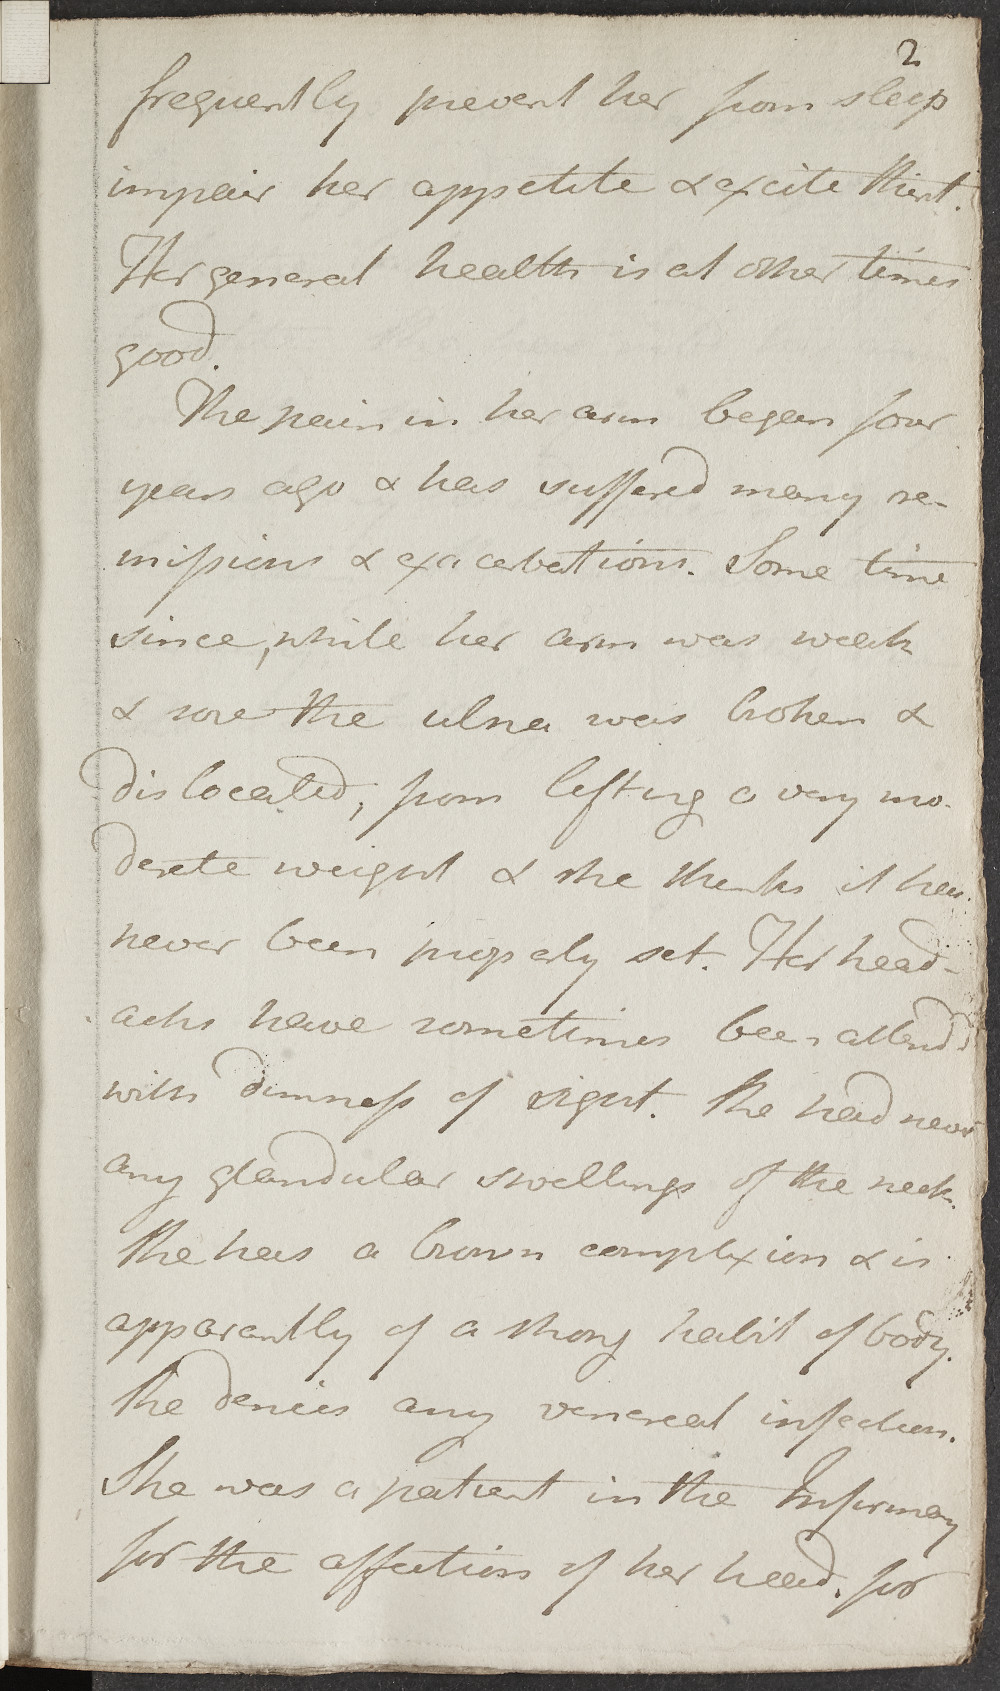 2
frequently prevent her from sleep
impair her appetite & excite thirst.
Her general health is at other times
good.
The pain in her arm began four
years ago & has suffered many re-
missions & exacerbations. Some time
since, while her arm was weak
& sore the ulna was broken &
dislocated, from lifting a very mo-
derate weight & she thinks it has
never been properly set. Her head-
achs have sometimes been attendd
with dimness of sight. She had never
any glandular swellings of the neck.
She has a brown complexion & is
apparently of a strong habit of body.
She denies any venereal infection.
She was a patient in the Infirmary
for the affection of her head. for